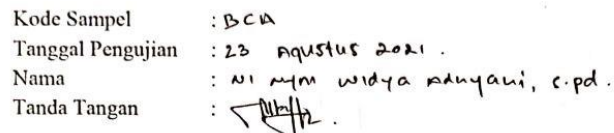 Kode Sampel : BCA
Tanggal Pengujian : 23 Agustus 2021 .
Nama : NI Nym Widya Adnyani, S.pd.
Tanda Tangan :